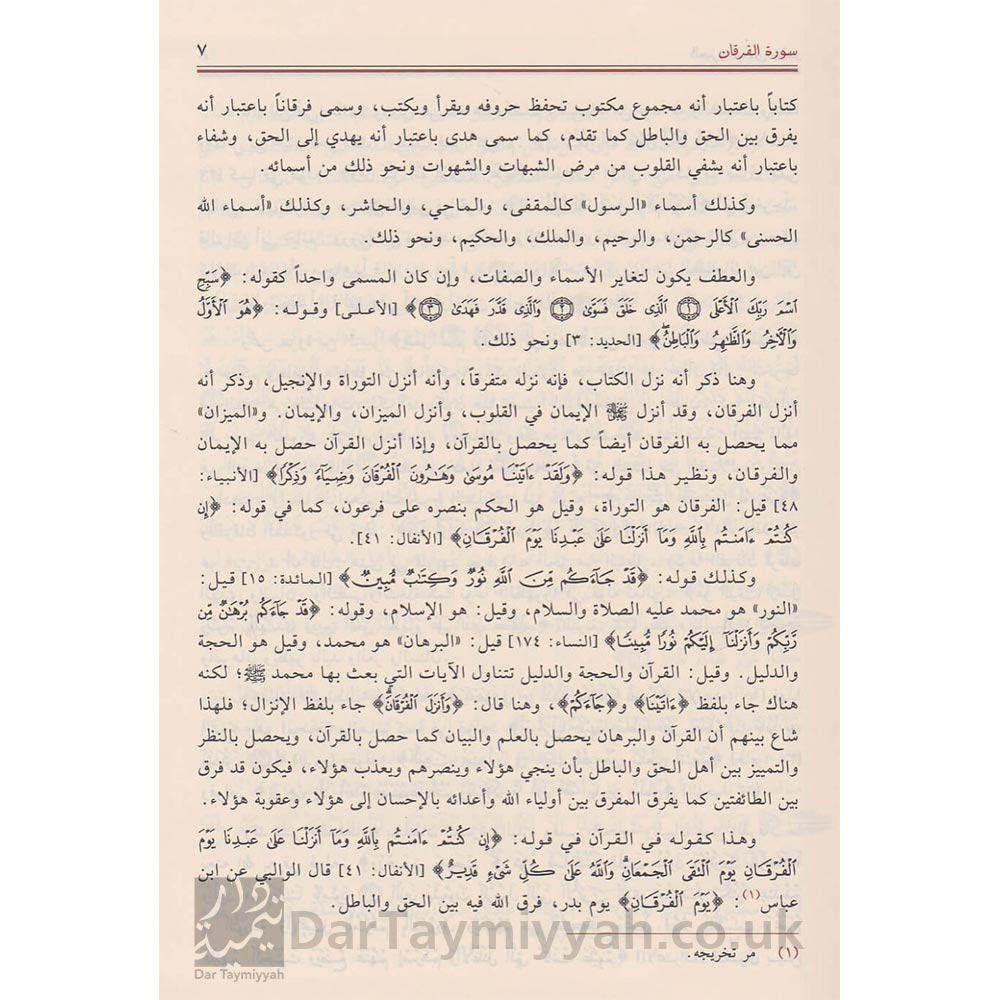 سورة الفرقان ٧
كتاباً باعتبار أنه مجموع مكتوب تحفظ حروفه ويقرأ ويكتب، وسمى فرقاناً باعتبار أنه
يفرق بين الحق والباطل كما تقدم، كما سمى هدى باعتبار أنه يهدي إلى الحق، وشفاء
باعتبار أنه يشفي القلوب من مرض الشبهات والشهوات ونحو ذلك من أسمائه.
وكذلك أسماء «الرسول» كالمقفى، والماحي، والحاشر، وكذلك «أسماء الله
الحسنى» كالرحمن، والرحيم، والملك، والحكيم، ونحو ذلك.
والعطف يكون لتغاير الأسماء والصفات، وإن كان المسمى واحداً كقوله: ﴿سَبِّحِ
اسْمَ رَبِّكَ الْأَعْلَى ۝١ الَّذِى خَلَقَ فَسَوَّىٰ ۝٢ وَالَّذِى قَدَّرَ فَهَدَىٰ ۝٣﴾ [الأعلى] وقوله: ﴿هُوَ الْأَوَّلُ
وَالْآخِرُ وَالظَّاهِرُ وَالْبَاطِنُ﴾ [الحديد: ٣] ونحو ذلك.
وهنا ذكر أنه نزل الكتاب، فإنه نزله متفرقاً، وأنه أنزل التوراة والإنجيل، وذكر أنه
أنزل الفرقان، وقد أنزل ﷻ الإيمان في القلوب، وأنزل الميزان، والإيمان. و«الميزان»
مما يحصل به الفرقان أيضاً كما يحصل بالقرآن، وإذا أنزل القرآن حصل به الإيمان
والفرقان، ونظير هذا قوله: ﴿وَلَقَدْ ءَاتَيْنَا مُوسَىٰ وَهَٰرُونَ الْفُرْقَانَ وَضِيَآءً وَذِكْرًا﴾ [الأنبياء:
٤٨] قيل: الفرقان هو التوراة، وقيل هو الحكم بنصره على فرعون، كما في قوله: ﴿إِن
كُنتُمْ ءَامَنتُم بِاللَّهِ وَمَآ أَنزَلْنَا عَلَىٰ عَبْدِنَا يَوْمَ الْفُرْقَانِ﴾ [الأنفال: ٤١].
وكذلك قوله: ﴿قَدْ جَآءَكُم مِّنَ اللَّهِ نُورٌ وَكِتَٰبٌ مُّبِينٌ﴾ [المائدة: ١٥] قيل:
«النور» هو محمد عليه الصلاة والسلام، وقيل: هو الإسلام، وقوله: ﴿قَدْ جَآءَكُم بُرْهَٰنٌ مِّن
رَّبِّكُمْ وَأَنزَلْنَآ إِلَيْكُمْ نُورًا مُّبِينًا﴾ [النساء: ١٧٤] قيل: «البرهان» هو محمد، وقيل هو الحجة
والدليل. وقيل: القرآن والحجة والدليل تتناول الآيات التي بعث بها محمد ﷺ؛ لكنه
هناك جاء بلفظ ﴿ءَاتَيْنَا﴾ و﴿جَآءَكُمْ﴾، وهنا قال: ﴿وَأَنزَلَ الْفُرْقَانَ﴾ جاء بلفظ الإنزال؛ فلهذا
شاع بينهم أن القرآن والبرهان يحصل بالعلم والبيان كما حصل بالقرآن، ويحصل بالنظر
والتمييز بين أهل الحق والباطل بأن ينجي هؤلاء وينصرهم ويعذب هؤلاء، فيكون قد فرق
بين الطائفتين كما يفرق المفرق بين أولياء الله وأعدائه بالإحسان إلى هؤلاء وعقوبة هؤلاء.
وهذا كقوله في القرآن في قوله: ﴿إِن كُنتُمْ ءَامَنتُم بِاللَّهِ وَمَآ أَنزَلْنَا عَلَىٰ عَبْدِنَا يَوْمَ
الْفُرْقَانِ يَوْمَ الْتَقَى الْجَمْعَانِ وَاللَّهُ عَلَىٰ كُلِّ شَىْءٍ قَدِيرٌ﴾ [الأنفال: ٤١] قال الوالبي عن ابن
عباس(١): ﴿يَوْمَ الْفُرْقَانِ﴾ يوم بدر، فرق الله فيه بين الحق والباطل.
(١) مر تخريجه.
دار تيمية
Dar Taymiyyah
DarTaymiyyah.co.uk